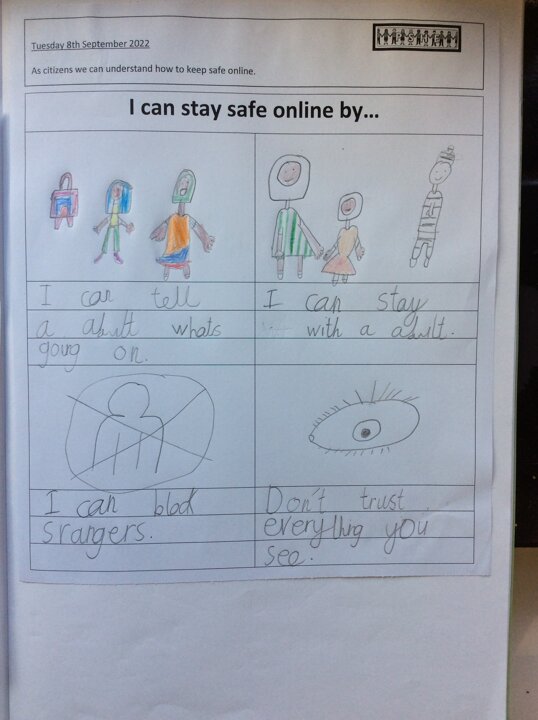 Tuesday 8th September 2022
As citizens we can understand how to keep safe online.
I can stay safe online by...
I can tell
a adult whats
going on.
I can stay
with a adult.
I can block
srangers.
Don't trust
everything you
see.